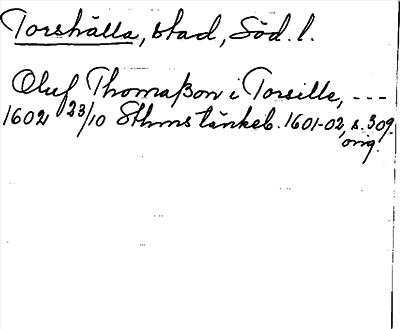 Torshälla, stad, Söd. l.
Oluf Thomaßon i Torsille, ---
1602 23/10 Sthms tänkeb. 1601-02, s. 309.
orig.